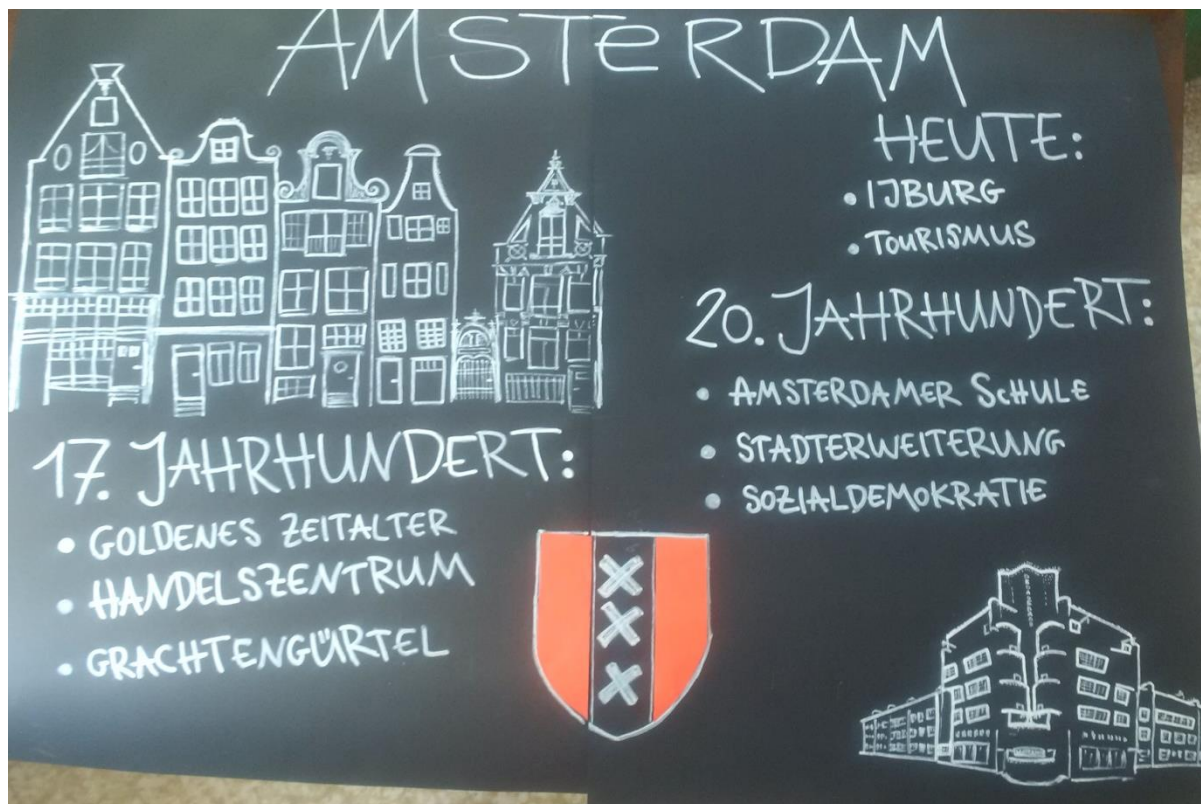 AMSTERDAM
17. JAHRHUNDERT:
• GOLDENES ZEITALTER
• HANDELSZENTRUM
• GRACHTENGÜRTEL
HEUTE:
• IJBURG
• TOURISMUS
20. JAHRHUNDERT:
• AMSTERDAMER SCHULE
• STADTERWEITERUNG
• SOZIALDEMOKRATIE